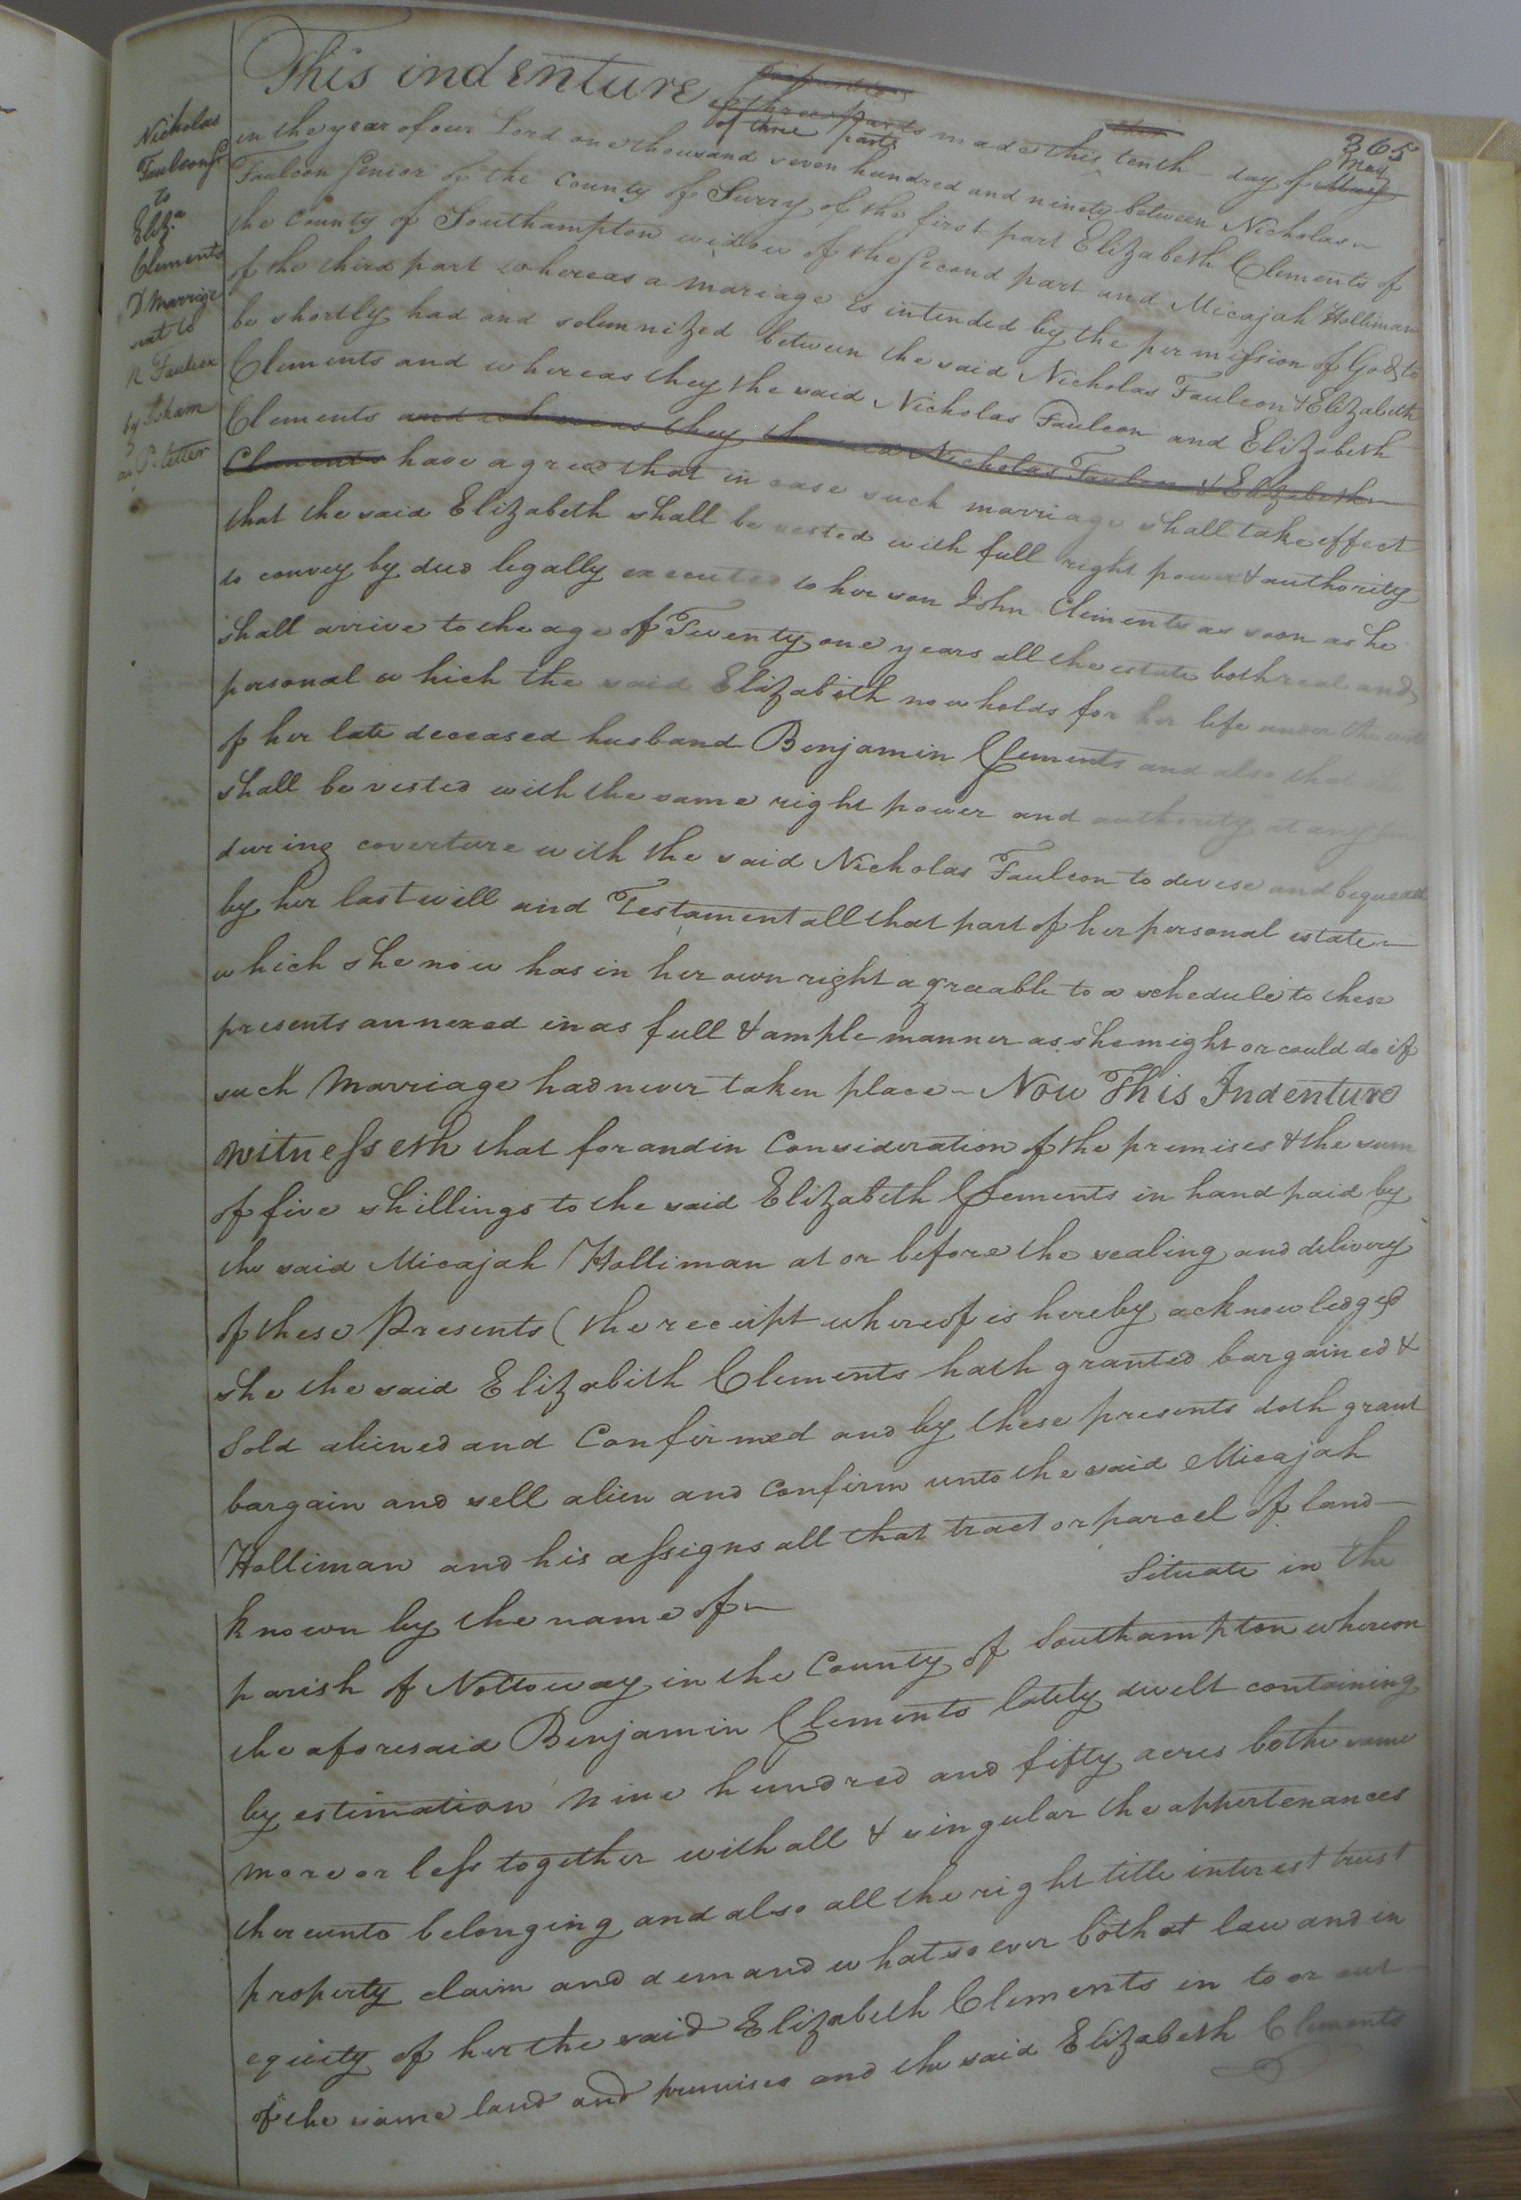 365
Nicholas
Faulcon Sr
to
Eliz.a
Clements
D Marriage
sent to
N Faulcon
by Isham
as Pr letter
This indenture of three parts made this tenth day of May
in the year of our Lord one thousand seven hundred and ninety between Nicholas
Faulcon Senior of the County of Surry of the first part Elizabeth Clements of
the County of Southampton widow of the second part and Micajah Holliman
of the third part whereas a mariage is intended by the permission of God to
be shortly had and solemnized between the said Nicholas Faulcon & Elizabeth
Clements and whereas they the said Nicholas Faulcon and Elizabeth
Clements and whereas they the said Nicholas Faulcon & Elizabeth
Clements have agreed that in case such marriage shall take effect
that the said Elizabeth shall be vested with full right power & authority
to convey by deed legally executed to her son John Clements as soon as he
shall arrive to the age of Twenty one years all the estate both real and
personal which the said Elizabeth now holds for her life under the will
of her late deceased husband Benjamin Clements and also that
shall be vested with the same right power and authority at any
during coverture with the said Nicholas Faulcon to devise and bequeath
by her last will and Testament all that part of her personal estate
which she now has in her own right agreeable to a schedule to these
presents annexed in as full & ample manner as she might or could do if
such Marriage had never taken place - Now This Indenture
Witnesseth that for and in Consideration of the premises & the sum
of five shillings to the said Elizabeth Clements in hand paid by
the said Micajah Holliman at or before the sealing and delivery
of these Presents (the receipt whereof is hereby acknowledged
she the said Elizabeth Clements hath granted bargained &
Sold aliened and Confirmed and by these presents doth grant
bargain and sell alien and Confirm unto the said Micajah
Holliman and his assigns all that tract or parcel of land
known by the name of Situate in the
parish of Nottoway in the County of Southampton whereon
the aforesaid Benjamin Clements lately dwelt containing
by estimation Nine hundred and fifty acres be the same
more or less together with all & singular the appertenances
thereunto belonging and also all the right title interest trust
property claim and demand whatsoever both at law and in
equity of her the said Elizabeth Clements in to or out
of the same land and premises and the said Elizabeth Clements